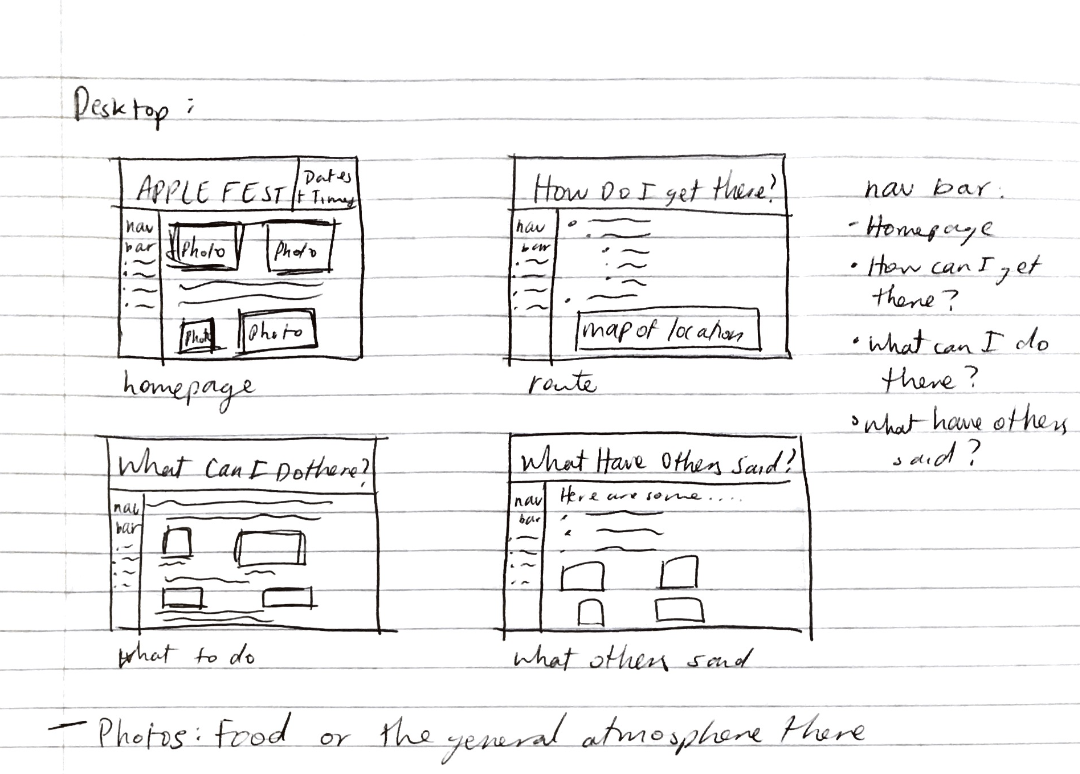 Desktop :
APPLE FEST
Dates
+ Times
nav
bar
Photo
Photo
Photo
Photo
homepage
How Do I get there?
nav
bar
map of location
route
nav bar:
- Homepage
• How can I get
there?
• what can I do
there?
• what have others
said?
What Can I Do there?
nav
bar
what to do
What Have Others Said?
nav
bar
Here are some....
what others said
- Photos: Food or the general atmosphere there